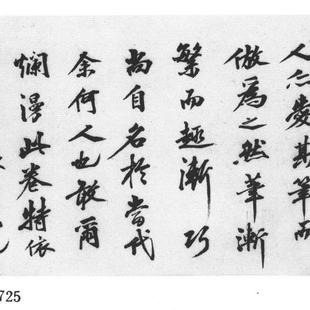 人亦愛其筆而
倣爲之然華漸
繁而趣漸巧
尚自名於當代
余何人也敢爾
爛漫此卷特依
725